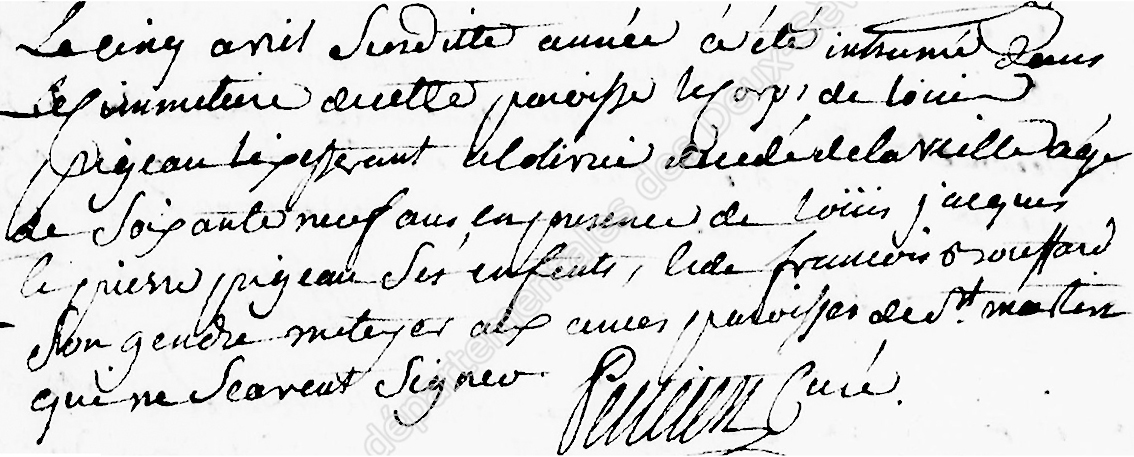 Le cinq avril Surditte année a été inhumé dans
le cimmetiere de cette paroisse le corps de loüis
pigeau décédé de la veille agé
de Soixante neuf ans en presence de loüis jacques
et pierre pigeau Sés enfents, et de francois Brouffard
Son gendre meteyer aux paroisse de St. martin
qui ne Scavent Signer curé.
départementales des Deux-Sèv